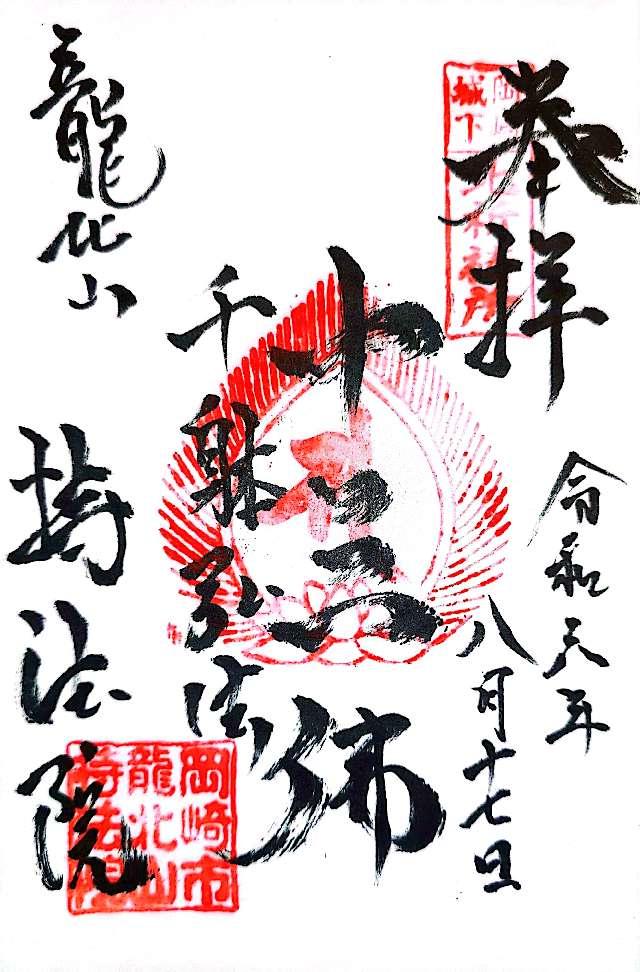 奉拝
城下
令和元年
八月十七日
十三佛
千躰弘法
龍北山
持法院
岡崎市
龍北山
持法院